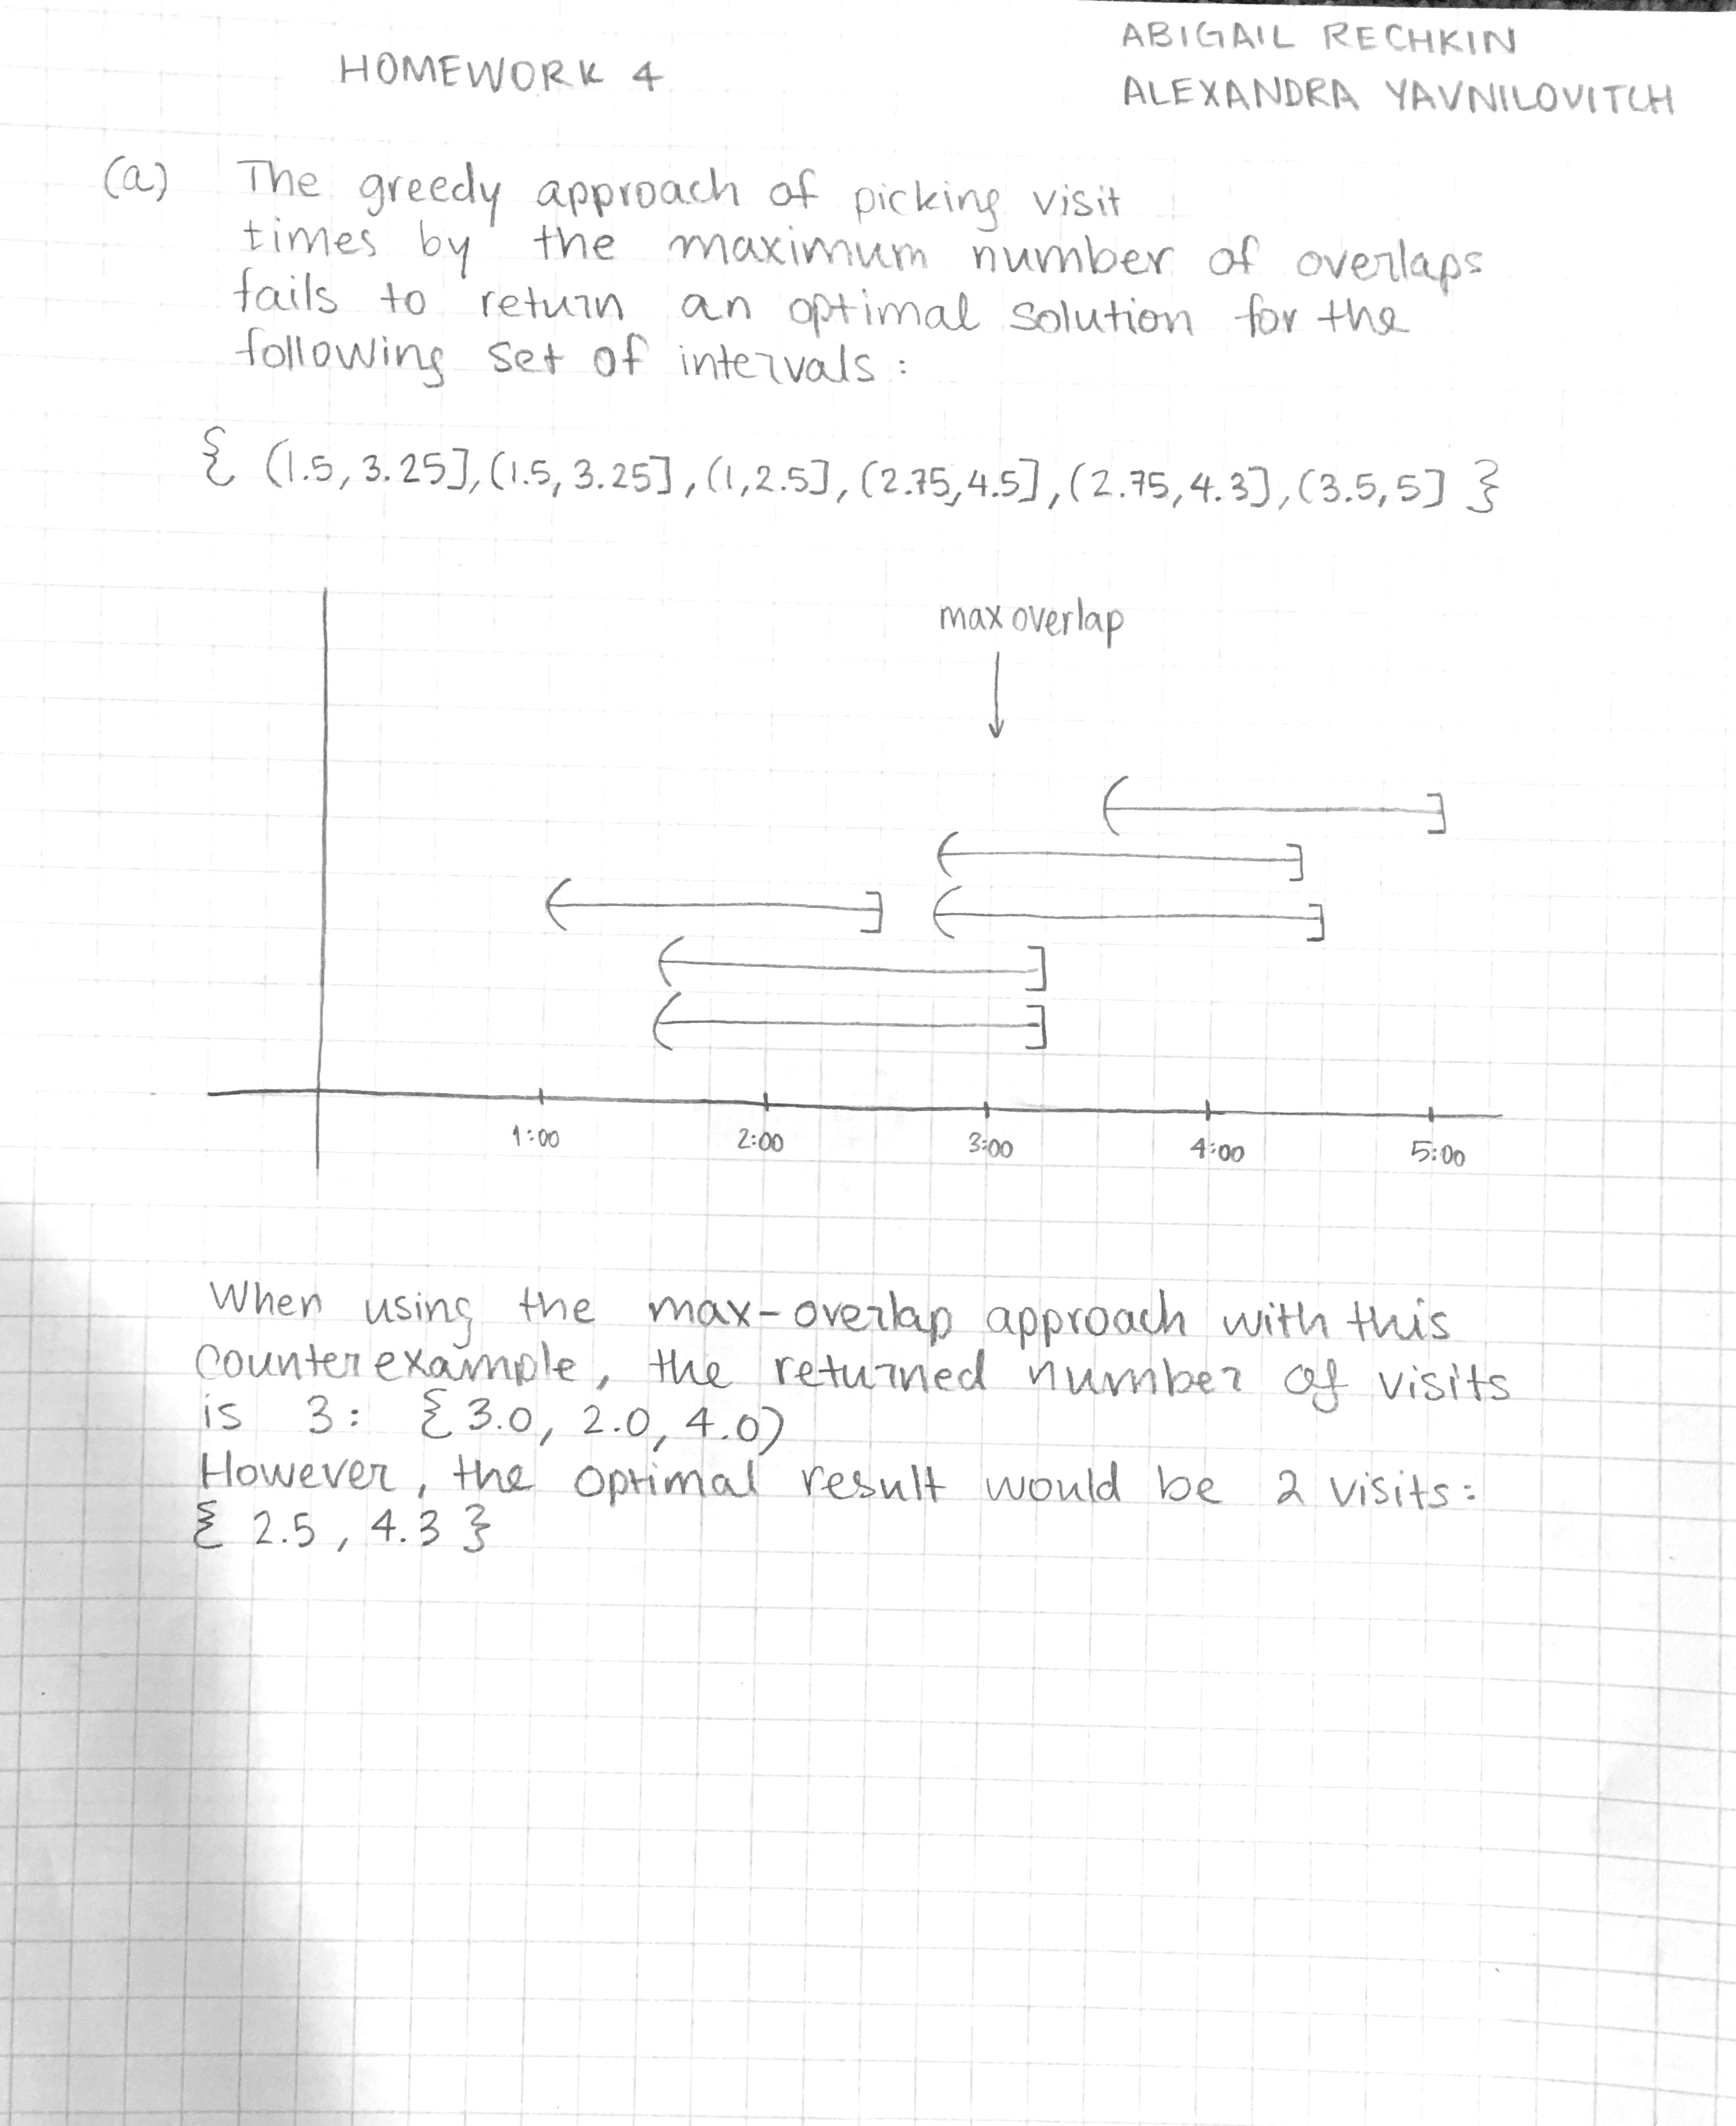 HOMEWORK 4
ABIGAIL RECHKIN
ALEXANDRA YAVNILOVITCH
(a) The greedy approach of picking visit
times by the maximum number of overlaps
fails to return an optimal solution for the
following set of intervals:
{ (1.5, 3.25], (1.5, 3.25], (1, 2.5], (2.75, 4.5], (2.75, 4.3], (3.5, 5] }
max overlap
1:00 2:00 3:00 4:00 5:00
When using the max-overlap approach with this
counterexample, the returned number of visits
is 3: { 3.0, 2.0, 4.0)
However, the optimal result would be 2 visits:
{ 2.5, 4.3 }